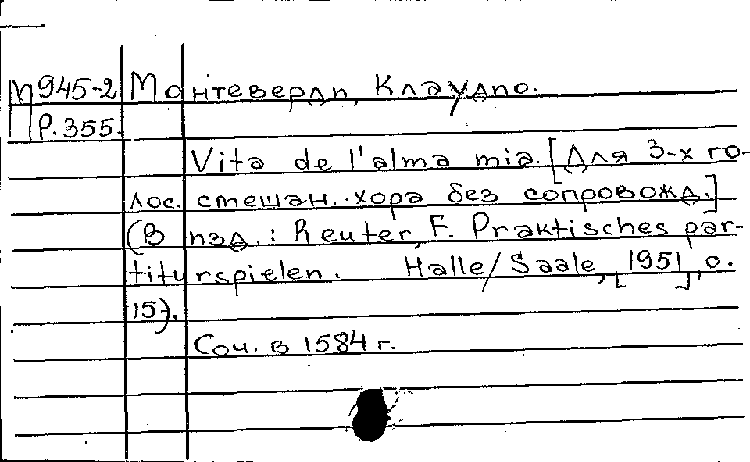 М 945-2 Монтеверди, Клаудио.
Р.355.
Vita de l'alma mia. [Для 3-х го-
лос. смешан. хора без сопровожд.]
(В изд.: Reuter, F. Praktisches par-
titurspielen. Halle/Saale, [1951], с.
15).
Соч. в 1584 г.